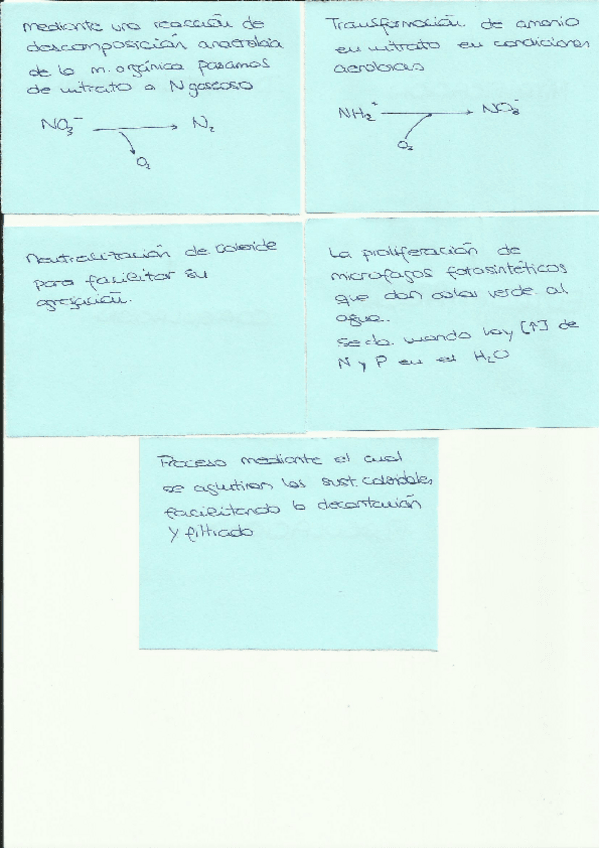 Mediante una reacción de
descomposición anaerobia
de la m. orgánica pasamos
de nitrato a N gaseoso
NO₃⁻ → N₂
O₂
Transformación de amonio
en nitrato en condiciones
aerobias
NH₂⁺ → NO₃⁻
O₂
Neutralización de coloide
para facilitar su
agregación.
La proliferación de
microfagos fotosintéticos
que dan color verde al
agua.
Se da cuando hay [↑] de
N y P en el H₂O
Proceso mediante el cual
se aglutinan las sust. coloidales
facilitando la decantación
y filtrado